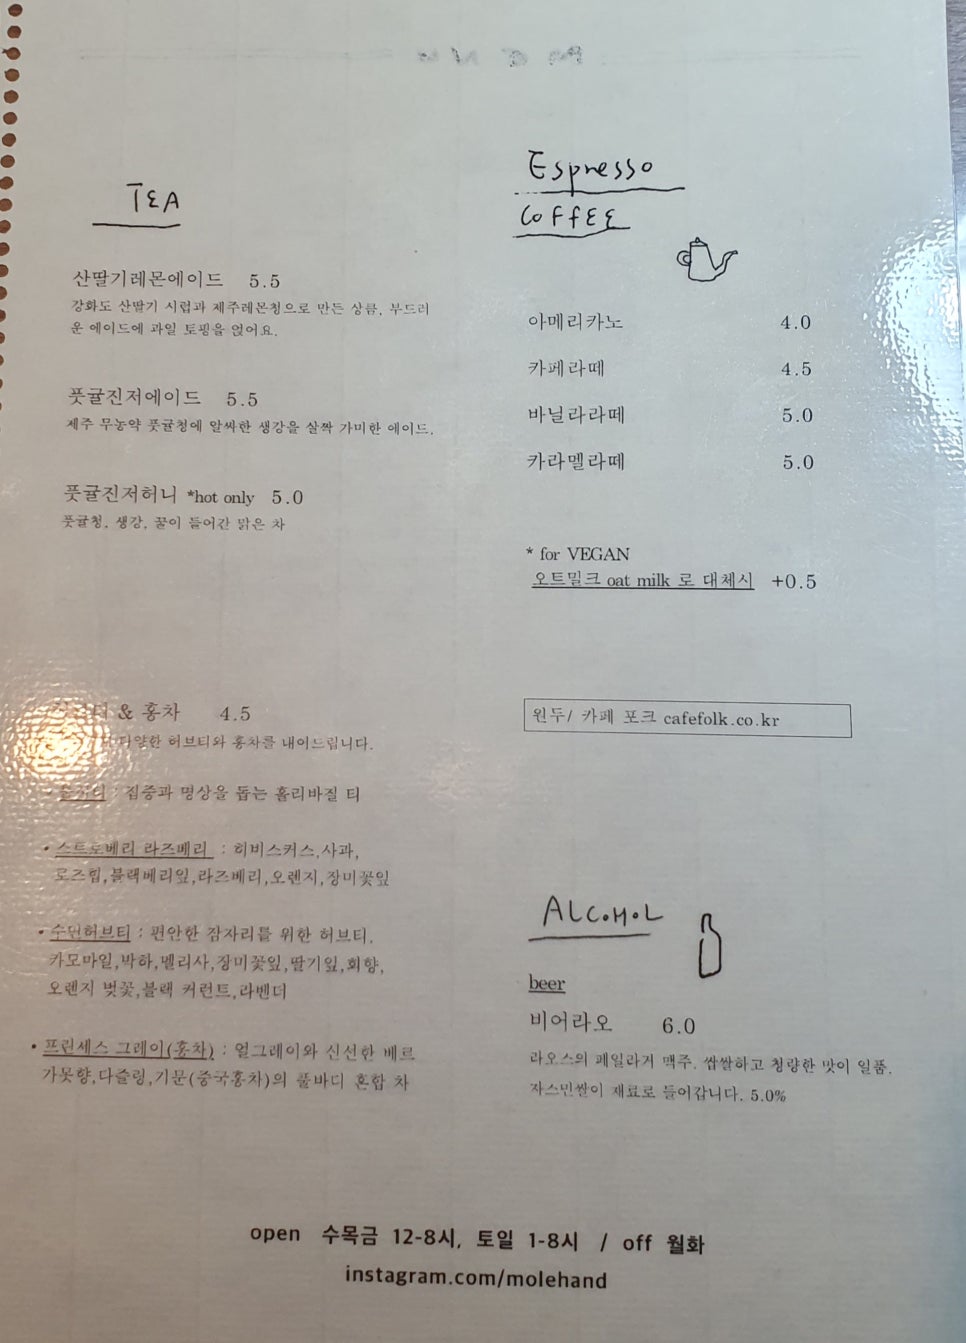 TEA
산딸기레몬에이드 5.5
강화도 산딸기 시럽과 제주레몬청으로 만든 상큼, 부드러
운 에이드에 과일 토핑을 얹어요.
풋귤진저에이드 5.5
제주 무농약 풋귤청에 알싸한 생강을 살짝 가미한 에이드.
풋귤진저허니 *hot only 5.0
풋귤청, 생강, 꿀이 들어간 맑은 차
& 홍차 4.5
다양한 허브티와 홍차를 내어드립니다.
: 집중과 명상을 돕는 홀리바질 티
• 스트로베리 라즈베리 : 히비스커스,사과,
로즈힙,블랙베리잎,라즈베리,오렌지,장미꽃잎
• 수면허브티 : 편안한 잠자리를 위한 허브티.
카모마일,박하,멜리사,장미꽃잎,딸기잎,회향,
오렌지 벚꽃,블랙 커런트,라벤더
• 프린세스 그레이(홍차) : 얼그레이와 신선한 베르
가못향,다즐링,기문(중국홍차)의 풀바디 혼합 차
Espresso
COFFEE
아메리카노 4.0
카페라떼 4.5
바닐라라떼 5.0
카라멜라떼 5.0
* for VEGAN
오트밀크 oat milk 로 대체시 +0.5
원두/ 카페 포크 cafefolk.co.kr
ALCOHOL
beer
비어라오 6.0
라오스의 페일라거 맥주. 쌉쌀하고 청량한 맛이 일품.
자스민쌀이 재료로 들어갑니다. 5.0%
open 수목금 12-8시, 토일 1-8시 / off 월화
instagram.com/molehand